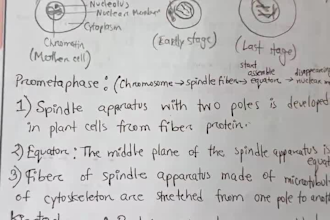 Nucleolus
Nuclear Membrane
Cytoplasm
Chromatin
(Mother cell)
(Early stage)
(Last stage)
start
assemble
disappearing
Prometaphase : (Chromosome → spindle fiber → equator → nuclear
1) Spindle appratus with two poles is developed
in plant cells from fiber protein.
2) Equator : The middle plane of the spindle apparatus is
equat
3) Fibers of spindle apparatus made of microtubul
of cytoskeleton are stretched from one pole to anoth